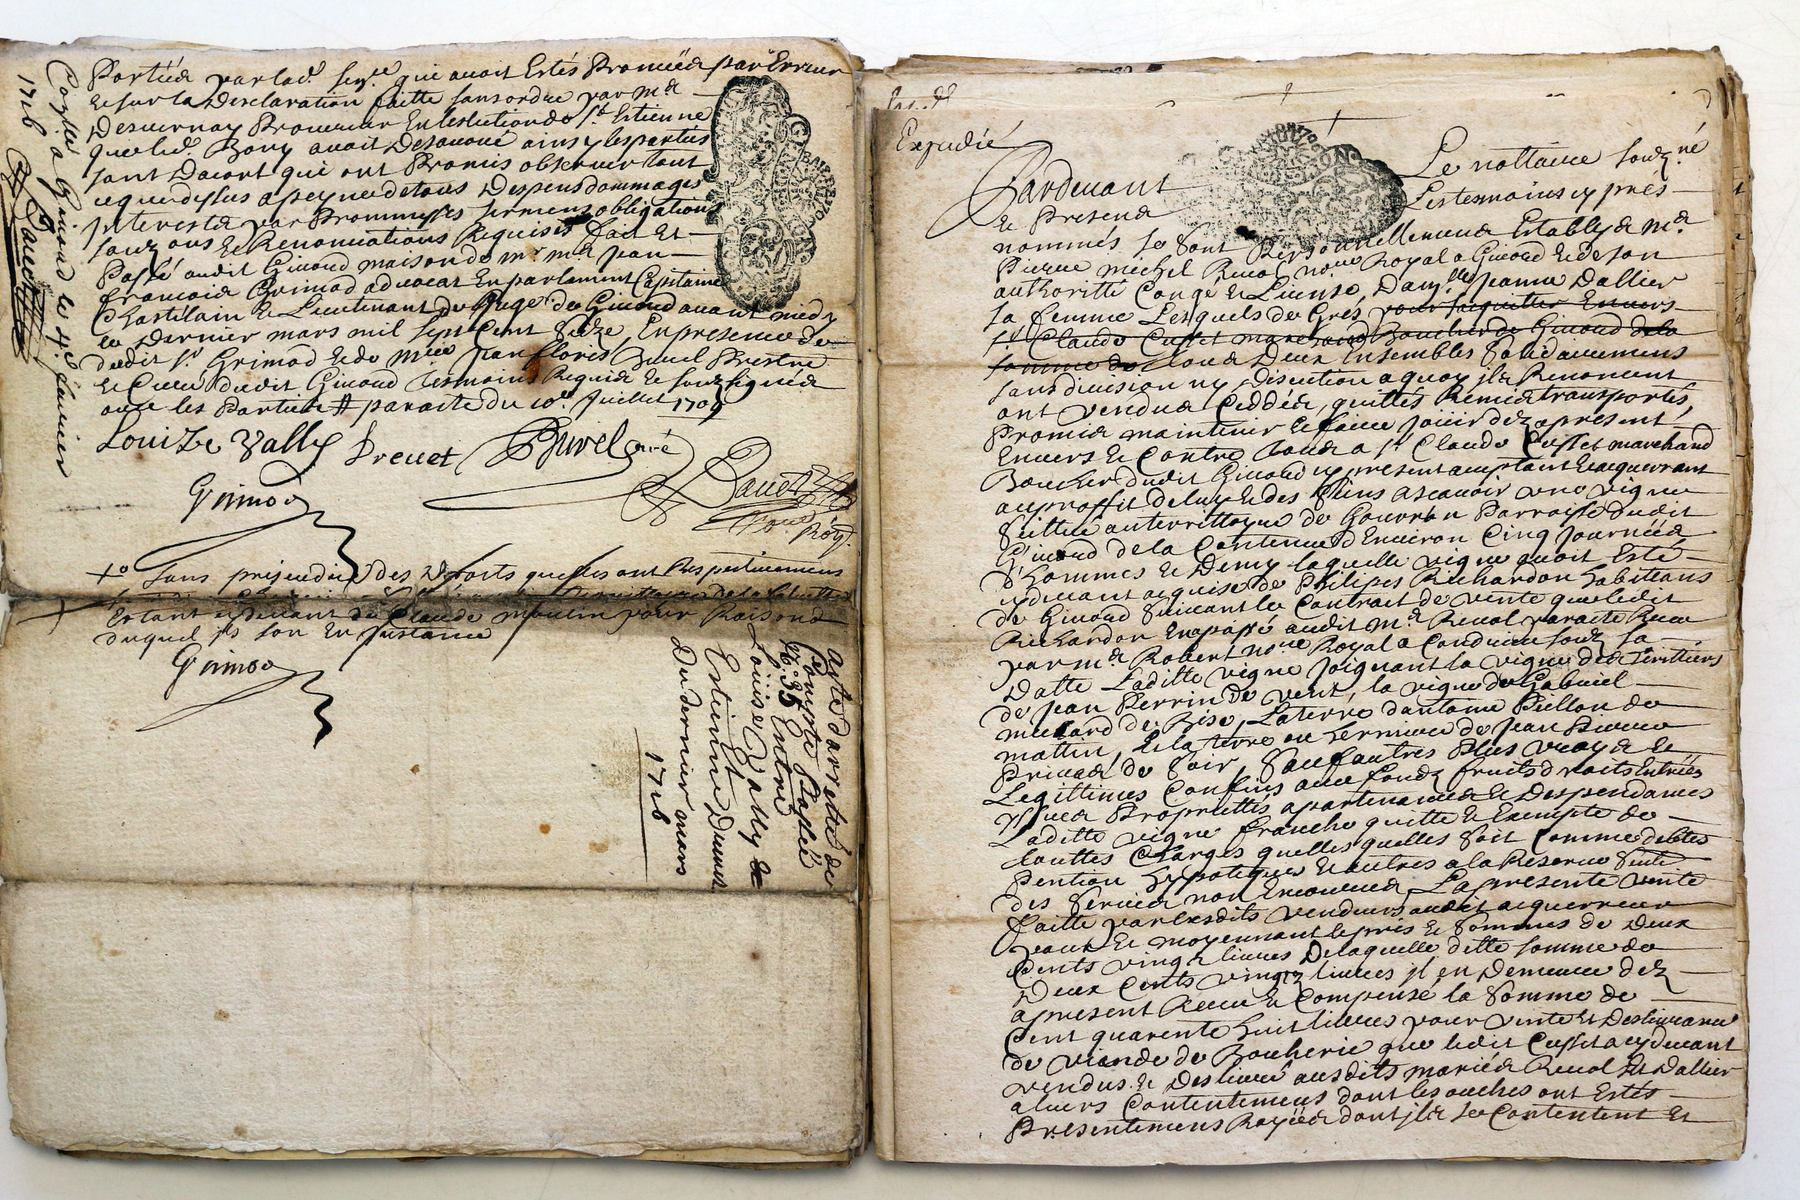 Partiës par lad. qui avoit Estés Prononcéë par Erreur
Et sur la Desclaration faitte sans ordre par Me
Desvernay Procureur En lestlection de St Estienne
que led. Bony avoit Desavoué ainsy les partiës
sont Dacort qui ont Promis observer tout
ce que dessus a peyne de tous Despens dommages
Interests par Prommesses serments obligations
souz ons Et Renonciations Requises fait Et
Passé audit Givord maison de Mr Me Jean
francois Grimod advocat En parlament Capitaine
Chastelain Et Lieutenant de Juge de Givord avant midy
le Dernier mars mil sept Cent Seze, En presence de
dudit Sr Grimod Et de Mre Jean Prestre
Et Curé dudit Givord tesmoins Requis Et souzsignés
avec les Partiës # paraste du 10e Juillet 1709
Louize Vally Drevet Buvel curé
Grimod Baudt
Not. Roy.
+o Sans prejeudice des Droits quelles ont Respectivement
Estant cydevant de Claude moulin pour Raison
duquel jls son En Justance
Grimod
1716
Coppié a Givord le 4e fevrier
acte darresté de
Compte Passéë
No 35 Entre
Louiize Vally Et
Estienne Drevet
Du dernier mars
1716
Expedié
Pardevant Le nottaire souz.né
Et Present Les tesmoins cy prés
nommés se sont Personnellement Establys Me
Pierre Michel Revol nore Royal a Givord Et de son
authoritté Congé Et License, Damlle Jeanne Dallier
sa femme Lesquels de Grés pour saquitter Envers
Sr Claude Cusset marchand Boucher de Givord de la
somme de tous Deux Ensembles solidairement
sans division ny discution a quoy jls Renoncent
ont vendus Ceddés, quittés Remis transportés,
Promis maintenir Et faire jouir dez apresent
Envers Et Contre tous a Sr Claude Cusset marchand
Boucher dudit Givord cy present acceptant Et acquerrant
au proffit de luy Et des siens ascavoir une vigne
scittuë au territtoyre de Gouvran Parroisse dudit
Givord de la Contenue d'Environ Cinq Journéës
d'hommes Et Demy laquelle vigne avoit Esté
cydevant acquise de Philipes Richardon habitans
de Givord suivant le Contract de vente que ledit
Richardon En a passé audit Me Revol Receu
par Me Robert nore Royal a Condrieu souz sa
Datte Laditte vigne Joignant la vigne des heritiers
de Jean Perrin de vent, la vigne de Gabriel
de Bise, La terre dantoine Pitton de
mattin, Et la terre ou verniere de Jean Pierre
Privas de soir, Sauf autres Plus vrays Et
Legittimes Confins avec fondz fruits droits Entréës
ysües Proprietés apartenances Et Despendances
Laditte vigne franche quitte Et Exempte de
touttes Charges quelles quelles soit Comme debtes
Pention hypoteques Et autres a la Reserve
des servis non Encourus La presente vente
faitte par lesdits vendeurs audit acquerreur
pour Et moyennant le pris Et somme de Deux
Cents vingt livres De laquelle ditte somme de
Deux Cents vingtz livres jl en Demeure dez
apresent Receu Et Compensé la somme de
Cent quarente huit livres pour vente Et Deslivrance
de viande de Boucherie que ledit Cusset a cydevant
vendus Et Deslivré ausdits mariés Revol Et Dallier
a leurs Contentement dont les ouches ont Estés
Presentement Rayéës dont jls se Contentent Et